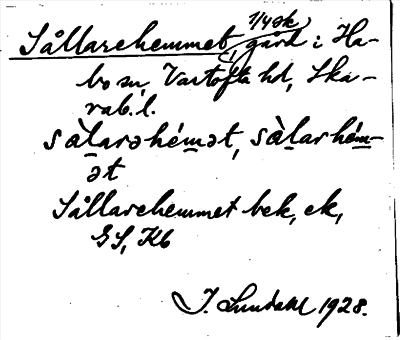 1/4 sk
Sållarehemmet, gård i Ha-
bo sn, Vartofta hd, Ska-
rab. l.
sàlarəhémət, sàlarhém-
ət
Sållarehemmet bek, ek,
GS, Kb
J. Lundahl 1928.